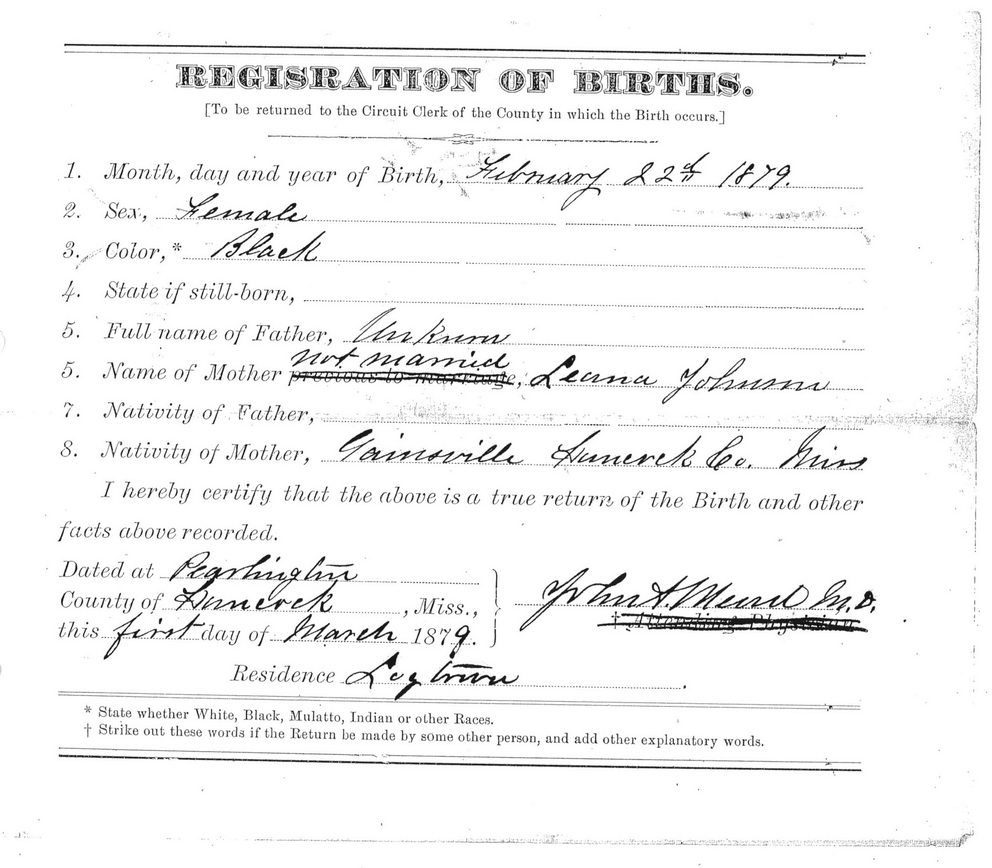 REGISRATION OF BIRTHS.
[To be returned to the Circuit Clerk of the County in which the Birth occurs.]
1. Month, day and year of Birth, February 22d 1879.
2. Sex, Female
3. Color,* Black
4. State if still-born,
5. Full name of Father, Unknown
not married
5. Name of Mother previous to marriage, Leana Johnson
7. Nativity of Father,
8. Nativity of Mother, Gainsville Hancock Co. Miss
I hereby certify that the above is a true return of the Birth and other
facts above recorded.
Dated at Pearlington
County of Hancock, Miss., John A. Mead M.D.
† Attending Physician
this first day of March 1879.
Residence Logtown.
* State whether White, Black, Mulatto, Indian or other Races.
† Strike out these words if the Return be made by some other person, and add other explanatory words.